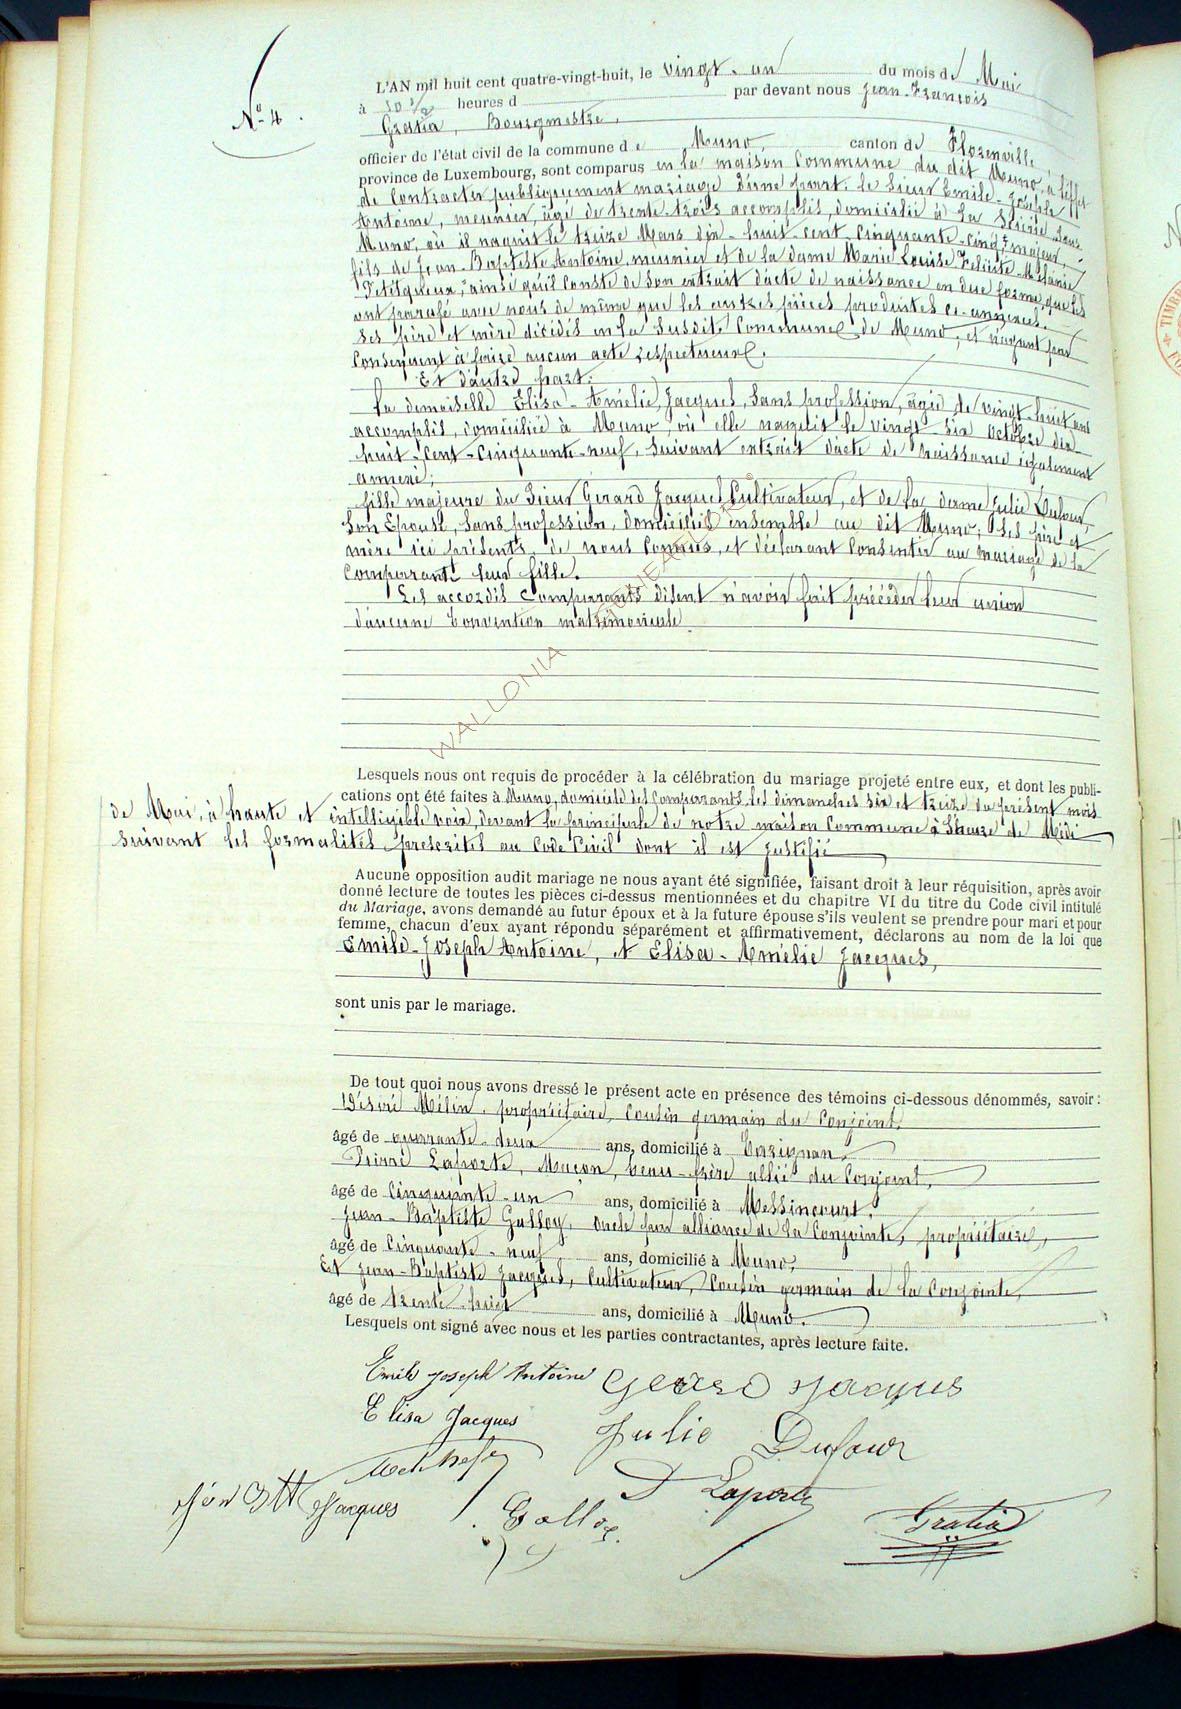 No 4.
L'AN mil huit cent quatre-vingt-huit, le vingt-un du mois de Mai
à 10 1/2 heures d par devant nous Jean-François
Gratia, Bourgmestre,
officier de l'état civil de la commune de Muno, canton de Florenville,
province de Luxembourg, sont comparus en la maison Commune du dit Muno, à l'effet
de Contracter publiquement mariage d'une part. le Sieur Emile-Joseph
Antoine, meunier, âgé de trente-trois accomplis, domicilié à la Scierie sous
Muno, où il naquit le treize Mars dix-huit-cent-cinquante-cinq, majeur,
fils de Jean-Baptiste Antoine, meunier et de la dame Marie Louise Félicité Mélanie
Petitqueux, ainsi qu'il Conste de son extrait d'acte de naissance en due forme, que les
ont parafé avec nous de même que les autres pièces produites ci-annexées.
ses père et mère décédés en la susdite Commune de Muno, et n'ayant par
Conséquent à faire aucun acte respectueux.
Et d'autre part:
la demoiselle Elisa-Amélie Jacques, Sans profession, âgée de vingt-huit ans
accomplis, domiciliée à Muno, où elle naquit le vingt-six Octobre dix-
huit-cent-cinquante-neuf, suivant extrait d'acte de naissance également
annexé;
fille majeure du Sieur Gérard Jacques Cultivateur, et de la dame Julie Dufour,
Son Epouse, Sans profession, domiciliés ensemble au dit Muno; ses père et
mère ici présents, de nous Connus, et déclarant Consentir au mariage de la
Comparante leur fille.
Les accordés Comparants disent n'avoir fait précéder leur union
d'aucune Convention matrimoniale
WALLONIA
Lesquels nous ont requis de procéder à la célébration du mariage projeté entre eux, et dont les publi-
cations ont été faites à Muno, domicile des Comparants, les dimanches six et treize du présent mois
de Mai, à haute et intelligible voix, devant la principale de notre maison Commune à l'heure de Midi
suivant les formalités prescrites au Code Civil dont il est justifié
Aucune opposition audit mariage ne nous ayant été signifiée, faisant droit à leur réquisition, après avoir
donné lecture de toutes les pièces ci-dessus mentionnées et du chapitre VI du titre du Code civil intitulé
du Mariage, avons demandé au futur époux et à la future épouse s'ils veulent se prendre pour mari et pour
femme, chacun d'eux ayant répondu séparément et affirmativement, déclarons au nom de la loi que
Emile-Joseph Antoine, et Elisa-Amélie Jacques,
sont unis par le mariage.
De tout quoi nous avons dressé le présent acte en présence des témoins ci-dessous dénommés, savoir:
Désiré Mélin, propriétaire, Cousin germain du Conjoint,
âgé de quarante-deux ans, domicilié à Carignan.
Pierre Laporte, Maçon, beau-frère allié du Conjoint,
âgé de Cinquante-un ans, domicilié à Messincourt.
Jean-Baptiste Galloy, oncle par alliance de la Conjointe, propriétaire,
âgé de Cinquante-neuf ans, domicilié à Muno,
Et Jean-Baptiste Jacques, Cultivateur, Cousin germain de la Conjointe,
âgé de trente-huit ans, domicilié à Muno.
Lesquels ont signé avec nous et les parties contractantes, après lecture faite.
Emile Joseph Antoine Gerard Jacques
Elisa Jacques Julie Dufour
Laporte
Jacques Galloy Gratia